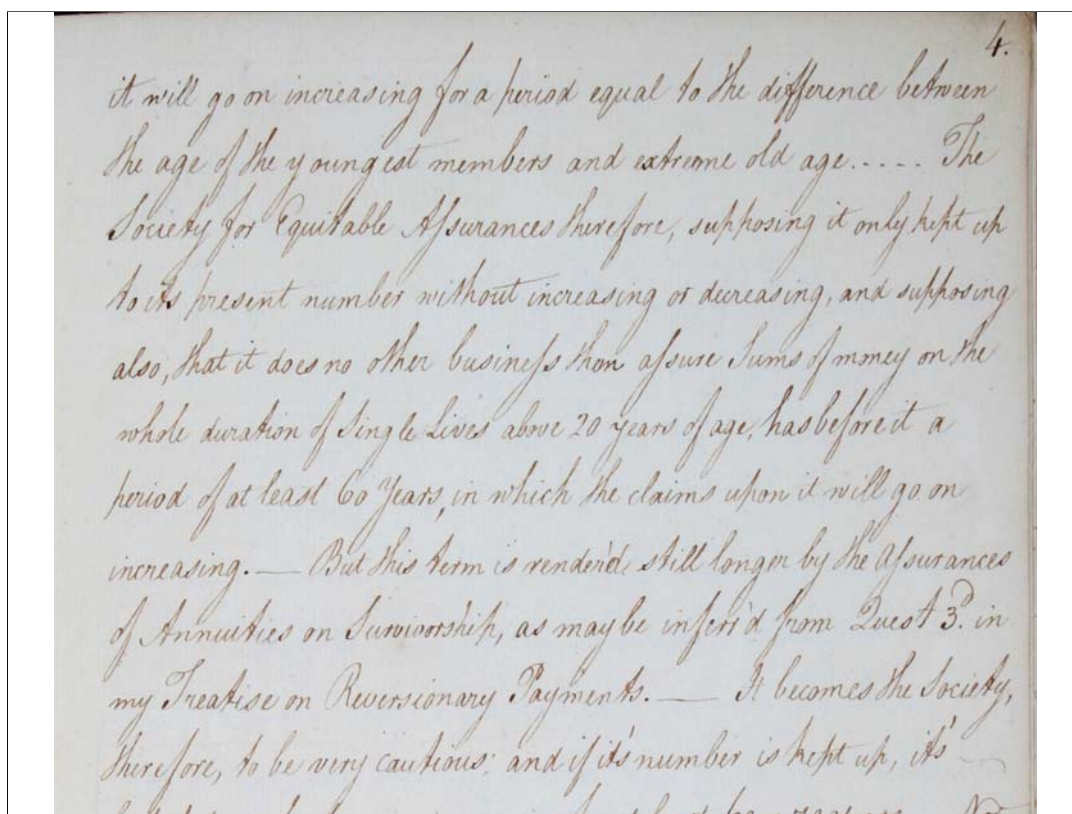 4.
it will go on increasing for a period equal to the difference between
the age of the youngest members and extreme old age..... The
Society for Equitable Aſsurances therefore, supposing it only kept up
to its present number without increasing or decreasing, and supposing
also, that it does no other busineſs than aſsure Sums of money on the
whole duration of Single Lives above 20 years of age, has before it a
period of at least 60 Years, in which the claims upon it will go on
increasing. — But this term is render'd still longer by the Aſsurances
of Annuities on Survivorship, as may be inferr'd from Quest 3d. in
my Treatise on Reversionary Payments. — It becomes the Society,
therefore, to be very cautious; and if it's number is kept up, it's